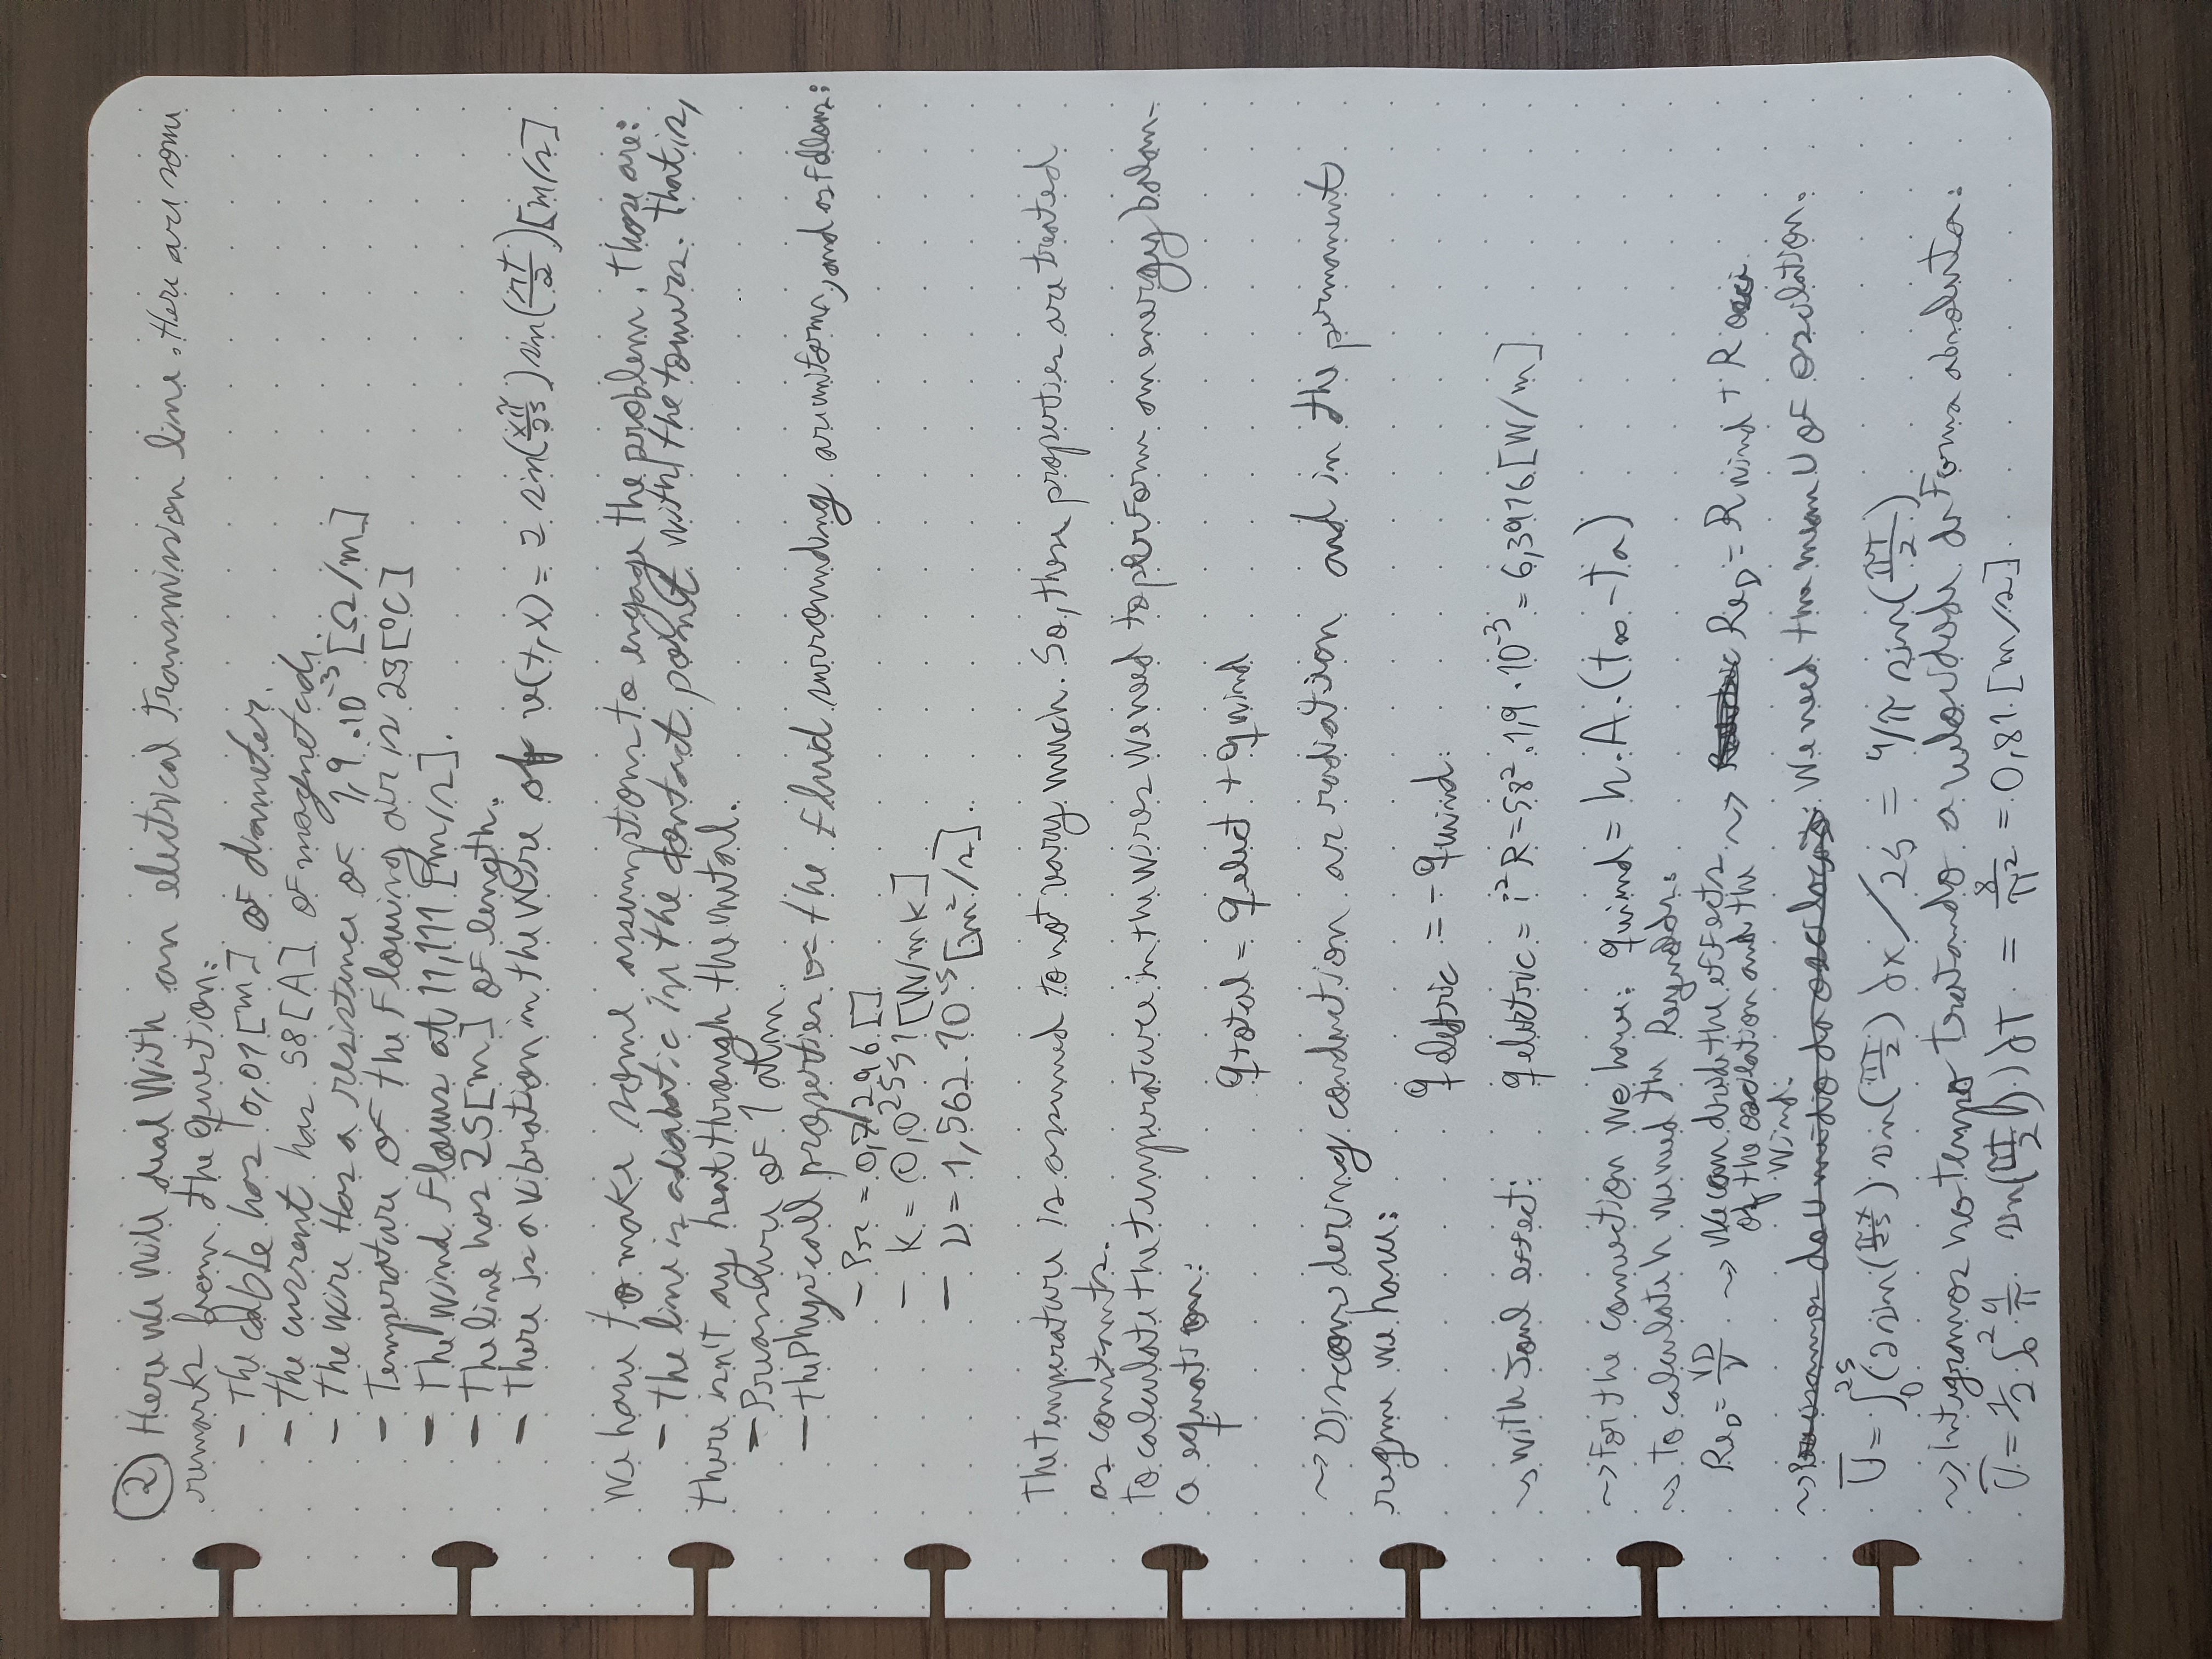 ② Here we will deal with an electrical transmission line. Here are some
remarks from the question:
- The cable has 0,01 [m] of diameter.
- The current has 58 [A] of magnetude.
- The wire Has a resistence of 1,9 . 10⁻³ [Ω/m]
- Temperature of the Flowing air is 29 [°C]
- The wind Flows at 11,111 [m/s].
- The line has 25 [m] of length.
- There is a vibration in the wire of v(t,x) = 2 sin(xπ/25) sin(πt/2) [m/s].
We have to make some assumptions to engage the problem. Those are:
- The line is adiabatic in the contact point with the towers. That is,
there isn't ay heat through the metal.
- Preassure of 1 atm.
- The Physicall properties of the Fluid surrounding are uniform, and as Follows:
- Pr = 0,7296 []
- K = 0,02551 [W/mK]
- ν = 1,562 . 10⁻⁵ [m²/s].
The temperature is assumed to not vary much. So, these properties are treated
as constants.
To calculate the temperature in the wires we need to perform an energy balan-
ce equation:
qtotal = qelect + qwind
~> Disconsidering conduction ar radiation and in the permanent
regime we have:
qeletric = - qwind.
~> With Joul effect: qelectric = i²R = 58² . 1,9 . 10⁻³ = 6,3916 [W/m]
~> For the convection we have: qwind = h . A . (T∞ - Ta)
~> To calculate h we need the Reynolds:
Re_D = VD/ν ~> We can divide the effects of the oscilation and the wind. ~> Re_D = Rwind + Rosci
~> We need the mean U of oscilation.
Ū = ∫₀²⁵ (2 sin(πx/25) sin(πT/2) dx / 25 = 4/π sin(πT/2)
~> Integramos no tempo tratando a velocidade de Forma absoluta:
Ū = 1/2 . ∫₀² 4/π sin(πT/2) . ) dT = 8/π² = 0,81 [m/s].